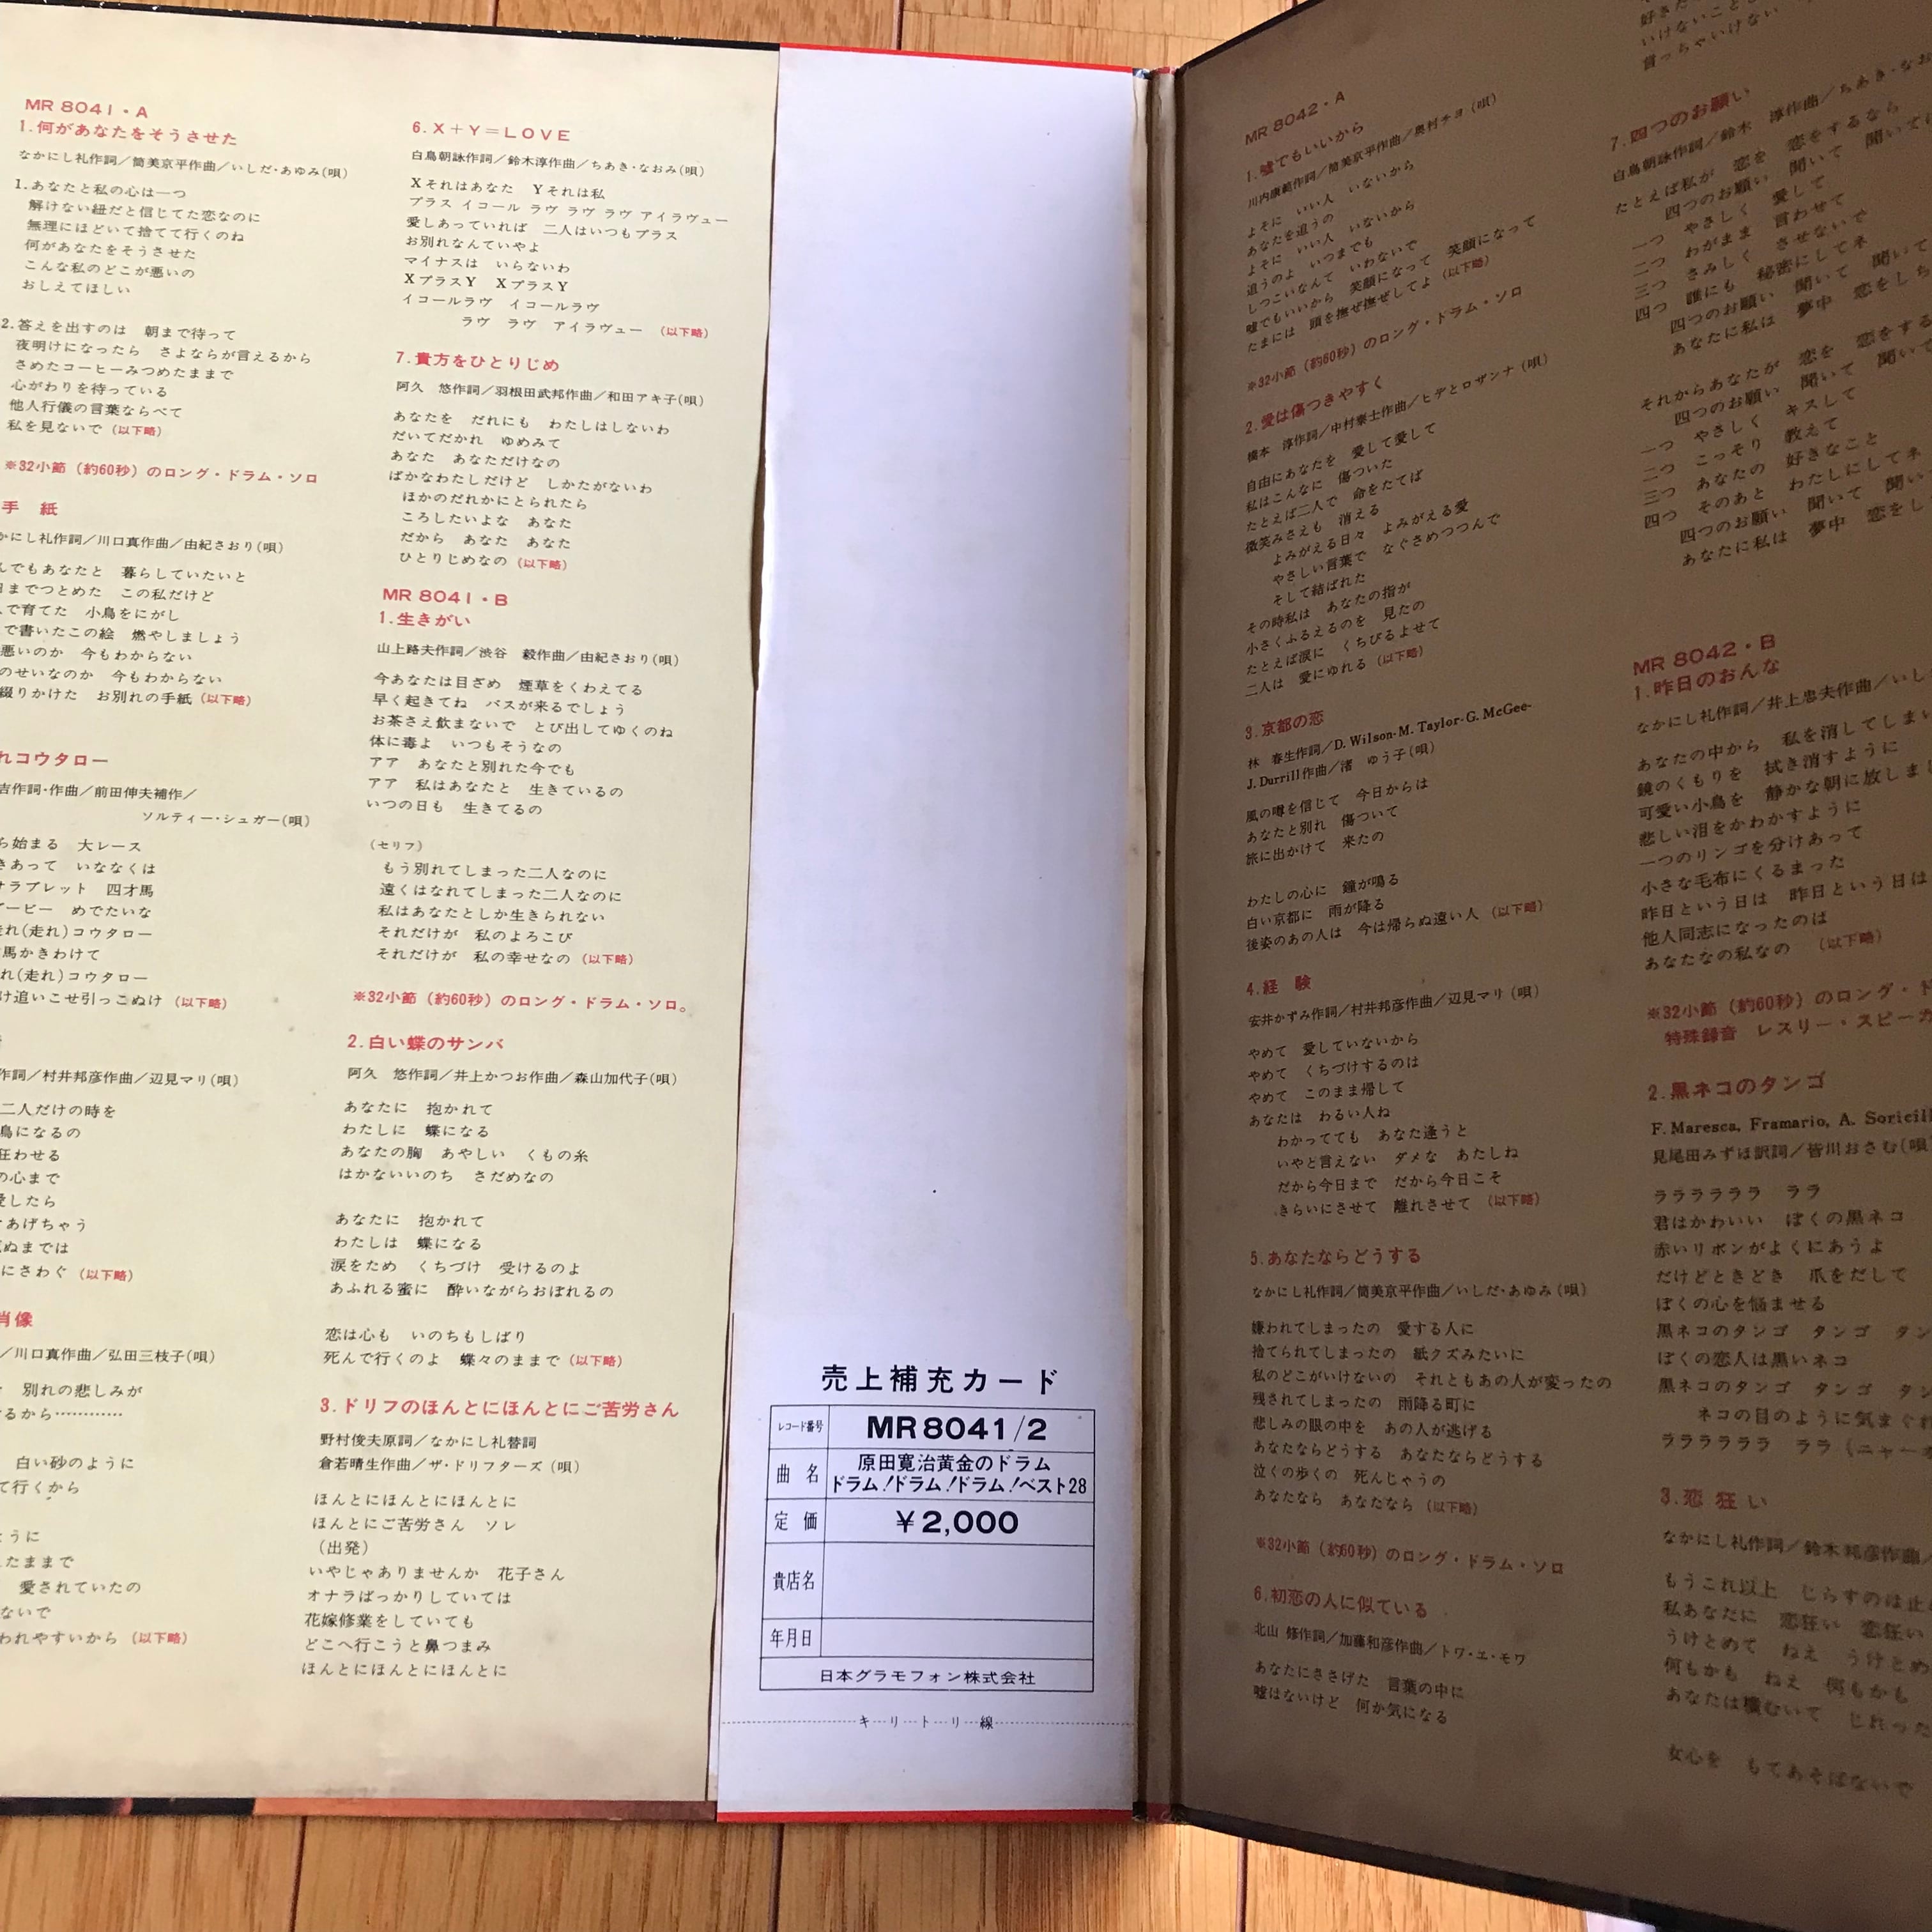 MR 8041・A
1.何があなたをそうさせた
なかにし礼作詞／筒美京平作曲／いしだ・あゆみ(唄)
1.あなたと私の心は一つ
解けない紐だと信じてた恋なのに
無理にほどいて捨てて行くのね
何があなたをそうさせた
こんな私のどこが悪いの
おしえてほしい
2.答えを出すのは　朝まで待って
夜明けになったら　さよならが言えるから
さめたコーヒーみつめたままで
心がわりを待っている
他人行儀の言葉ならべて
私を見ないで(以下略)
※32小節(約60秒)のロング・ドラム・ソロ
手　紙
かにし礼作詞／川口真作曲／由紀さおり(唄)
んでもあなたと　暮らしていたいと
日までつとめた　この私だけど
で育てた　小鳥をにがし
で書いたこの絵　燃やしましょう
悪いのか　今もわからない
のせいなのか　今もわからない
綴りかけた　お別れの手紙(以下略)
れコウタロー
吉作詞・作曲／前田伸夫補作／
ソルティー・シュガー(唄)
ら始まる　大レース
きあって　いななくは
サラブレット　四才馬
ービー　めでたいな
走れ(走れ)コウタロー
馬かきわけて
れ(走れ)コウタロー
け追いこせ引っこぬけ(以下略)
作詞／村井邦彦作曲／辺見マリ(唄)
二人だけの時を
鳥になるの
狂わせる
の心まで
愛したら
あげちゃう
ぬまでは
にさわぐ(以下略)
肖像
／川口真作曲／弘田三枝子(唄)
別れの悲しみが
るから…………
白い砂のように
て行くから
ように
たままで
愛されていたの
ないで
われやすいから(以下略)
6.X＋Y＝LOVE
白鳥朝詠作詞／鈴木淳作曲／ちあき・なおみ(唄)
Xそれはあなた　Yそれは私
プラス イコール ラヴ ラヴ ラヴ アイラヴュー
愛しあっていれば　二人はいつもプラス
お別れなんていやよ
マイナスは　いらないわ
XプラスY　XプラスY
イコールラヴ　イコールラヴ
ラヴ　ラヴ　アイラヴュー　(以下略)
7.貴方をひとりじめ
阿久　悠作詞／羽根田武邦作曲／和田アキ子(唄)
あなたを　だれにも　わたしはしないわ
だいてだかれ　ゆめみて
あなた　あなただけなの
ばかなわたしだけど　しかたがないわ
ほかのだれかにとられたら
ころしたいよな　あなた
だから　あなた　あなた
ひとりじめなの(以下略)
MR 8041・B
1.生きがい
山上路夫作詞／渋谷　毅作曲／由紀さおり(唄)
今あなたは目ざめ　煙草をくわえてる
早く起きてね　バスが来るでしょう
お茶さえ飲まないで　とび出してゆくのね
体に毒よ　いつもそうなの
アア　あなたと別れた今でも
アア　私はあなたと　生きているの
いつの日も　生きてるの
(セリフ)
もう別れてしまった二人なのに
遠くはなれてしまった二人なのに
私はあなたとしか生きられない
それだけが　私のよろこび
それだけが　私の幸せなの(以下略)
※32小節(約60秒)のロング・ドラム・ソロ。
2.白い蝶のサンバ
阿久　悠作詞／井上かつお作曲／森山加代子(唄)
あなたに　抱かれて
わたしに　蝶になる
あなたの胸　あやしい　くもの糸
はかないいのち　さだめなの
あなたに　抱かれて
わたしは　蝶になる
涙をため　くちづけ　受けるのよ
あふれる蜜に　酔いながらおぼれるの
恋は心も　いのちもしばり
死んで行くのよ　蝶々のままで(以下略)
3.ドリフのほんとにほんとにご苦労さん
野村俊夫原詞／なかにし礼替詞
倉若晴生作曲／ザ・ドリフターズ(唄)
ほんとにほんとにほんとに
ほんとにご苦労さん　ソレ
(出発)
いやじゃありませんか　花子さん
オナラばっかりしていては
花嫁修業をしていても
どこへ行こうと鼻つまみ
ほんとにほんとにほんとに
売上補充カード
レコード番号　MR8041/2
曲名　原田寛治黄金のドラム
ドラム！ドラム！ドラム！ベスト28
定価　￥2,000
貴店名
年月日
日本グラモフォン株式会社
キ…リ…ト…リ…線
MR 8042・A
1.嘘でもいいから
川内康範作詞／筒美京平作曲／奥村チヨ(唄)
よそに　いい人　いないから
あなたを追うの
よそに　いい人　いないから
追うのよ　いつまでも
しつこいなんて　いわないで
嘘でもいいから　笑顔になって　笑顔になって
たまには　頭を撫ぜ撫ぜしてよ(以下略)
※32小節(約60秒)のロング・ドラム・ソロ
2.愛は傷つきやすく
橋本　淳作詞／中村泰士作曲／ヒデとロザンナ(唄)
自由にあなたを　愛して愛して
私はこんなに　傷ついた
たとえば二人で　命をたてば
微笑みさえも　消える
よみがえる日々　よみがえる愛
やさしい言葉で　なぐさめつつんで
そして結ばれた
その時私は　あなたの指が
小さくふるえるのを　見たの
たとえば涙に　くちびるよせて
二人は　愛にゆれる(以下略)
3.京都の恋
林　春生作詞／D. Wilson-M. Taylor-G. McGee-
J. Durrill作曲／渚　ゆう子(唄)
風の噂を信じて　今日からは
あなたと別れ　傷ついて
旅に出かけて　来たの
わたしの心に　鐘が鳴る
白い京都に　雨が降る
後姿のあの人は　今は帰らぬ遠い人(以下略)
4.経　験
安井かずみ作詞／村井邦彦作曲／辺見マリ(唄)
やめて　愛していないから
やめて　くちづけするのは
やめて　このまま帰して
あなたは　わるい人ね
わかってても　あなた逢うと
いやと言えない　ダメな　あたしね
だから今日まで　だから今日こそ
きらいにさせて　離れさせて(以下略)
5.あなたならどうする
なかにし礼作詞／筒美京平作曲／いしだ・あゆみ(唄)
嫌われてしまったの　愛する人に
捨てられてしまったの　紙クズみたいに
私のどこがいけないの　それともあの人が変ったの
残されてしまったの　雨降る町に
悲しみの眼の中を　あの人が逃げる
あなたならどうする　あなたならどうする
泣くの歩くの　死んじゃうの
あなたなら　あなたなら(以下略)
※32小節(約60秒)のロング・ドラム・ソロ
6.初恋の人に似ている
北山　修作詞／加藤和彦作曲／トワ・エ・モワ
あなたにささげた　言葉の中に
嘘はないけど　何か気になる
好きだ
いけないこと
言っちゃいけない
7.四つのお願い
白鳥朝詠作詞／鈴木　淳作曲／ちあき・なお
たとえば私が　恋を　恋をするなら
四つのお願い　聞いて　聞いて
一つ　やさしく　愛して
二つ　わがまま　言わせて
三つ　さみしく　させないで
四つ　誰にも　秘密にしてネ
四つのお願い　聞いて　聞いて
あなたに私は　夢中　恋をしち
それからあなたが　恋を　恋をする
四つのお願い　聞いて　聞いて
一つ　やさしく　キスして
二つ　こっそり　教えて
三つ　あなたの　好きなこと
四つ　そのあと　わたしにしてネ
四つのお願い　聞いて　聞い
あなたに私は　夢中　恋をし
MR 8042・B
1.昨日のおんな
なかにし礼作詞／井上忠夫作曲／いし
あなたの中から　私を消してしま
鏡のくもりを　拭き消すように
可愛い小鳥を　静かな朝に放しま
悲しい泪をかわかすように
一つのリンゴを分けあって
小さな毛布にくるまった
昨日という日は　昨日という日は
他人同志になったのは
あなたなの私なの　(以下略)
※32小節(約60秒)のロング・ド
特殊録音　レスリー・スピーカ
2.黒ネコのタンゴ
F. Maresca, Framario, A. Soricill
見尾田みずほ訳詞／皆川おさむ(唄
ラララララララ　ララ
君はかわいい　ぼくの黒ネコ
赤いリボンがよくにあうよ
だけどときどき　爪をだして
ぼくの心を悩ませる
黒ネコのタンゴ　タンゴ　タン
ぼくの恋人は黒いネコ
黒ネコのタンゴ　タンゴ　タン
ネコの目のように気まぐれ
ラララララララ　ララ(ニャーオ
3.恋狂い
なかにし礼作詞／鈴木邦彦作曲／
もうこれ以上　じらすのは止め
私あなたに　恋狂い　恋狂い
うけとめて　ねえ　うけとめ
何もかも　ねえ　何もかも
あなたは横むいて　じれった
女心を　もてあそばないで